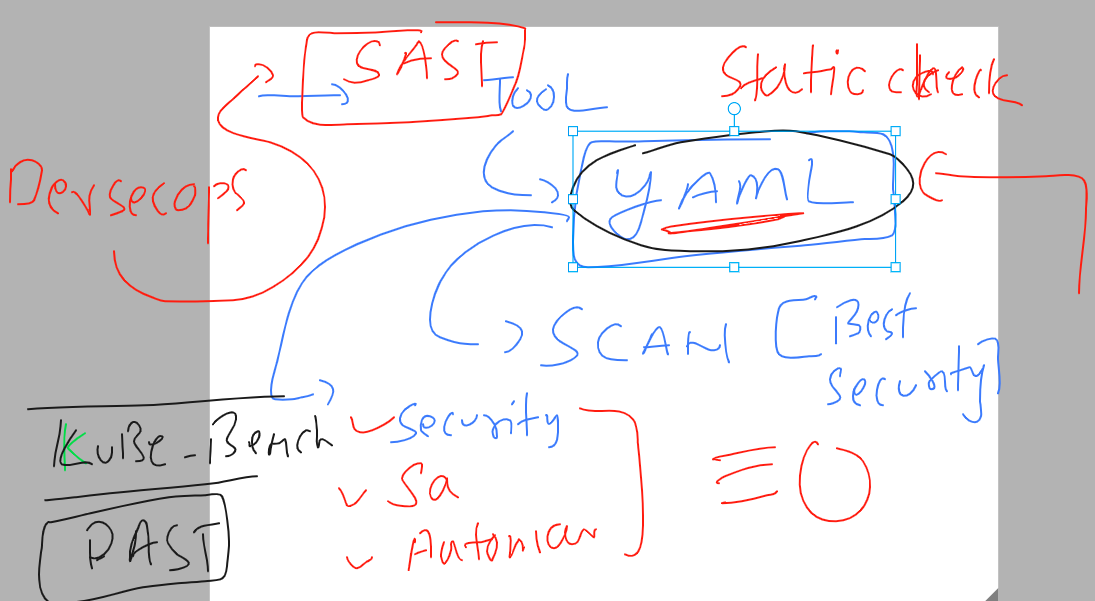 SAST
TOOL
Static check
Devsecops
YAML
SCAN [Best
security]
Kube-Bench
security
Sa
DAST